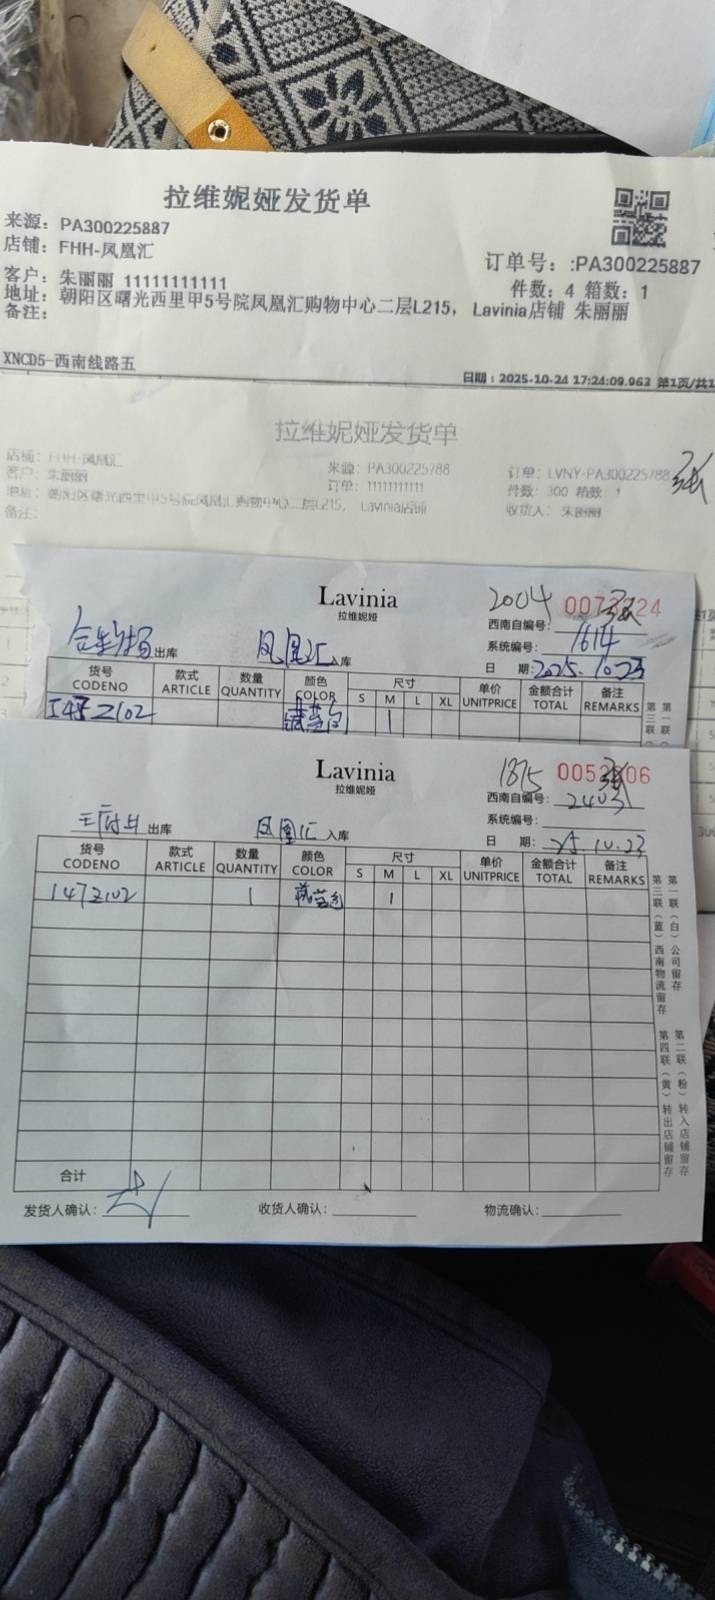 拉维妮娅发货单
来源：PA300225887
店铺：FHH-凤凰汇
订单号：:PA300225887
客户：朱丽丽 11111111111
件数：4 箱数：1
地址：朝阳区曙光西里甲5号院凤凰汇购物中心二层L215， Lavinia店铺 朱丽丽
备注：
XNCD5-西南线路五
日期：2025-10-24 17:24:09.963 第1页/共1
拉维妮娅发货单
店铺：FHH-凤凰汇
来源：PA300225788
订单：LVNY-PA300225788
客户：朱丽丽
订单：11111111111
件数：300 箱数：1
地址：朝阳区曙光西里甲5号院凤凰汇购物中心二层L215， Lavinia店铺
收货人：朱丽丽
备注：
Lavinia
拉维妮娅
2004
西南自编号：
系统编号：1614
出库 凤凰汇入库
日 期：2025.10.23
货号 款式 数量 颜色 尺寸 单价 金额合计 备注
CODENO ARTICLE QUANTITY COLOR S M L XL UNITPRICE TOTAL REMARKS
147Z102 藏蓝色 1
Lavinia
拉维妮娅
1875
西南自编号：2403
系统编号：
王府井出库 凤凰汇入库
日 期：25.10.23
货号 款式 数量 颜色 尺寸 单价 金额合计 备注
CODENO ARTICLE QUANTITY COLOR S M L XL UNITPRICE TOTAL REMARKS
147Z102 1 藏蓝色 1
第一联（白）公司留存
第三联（蓝）西南物流留存
第二联（粉）转入店铺留存
第四联（黄）转出店铺留存
合计
发货人确认： 收货人确认： 物流确认：